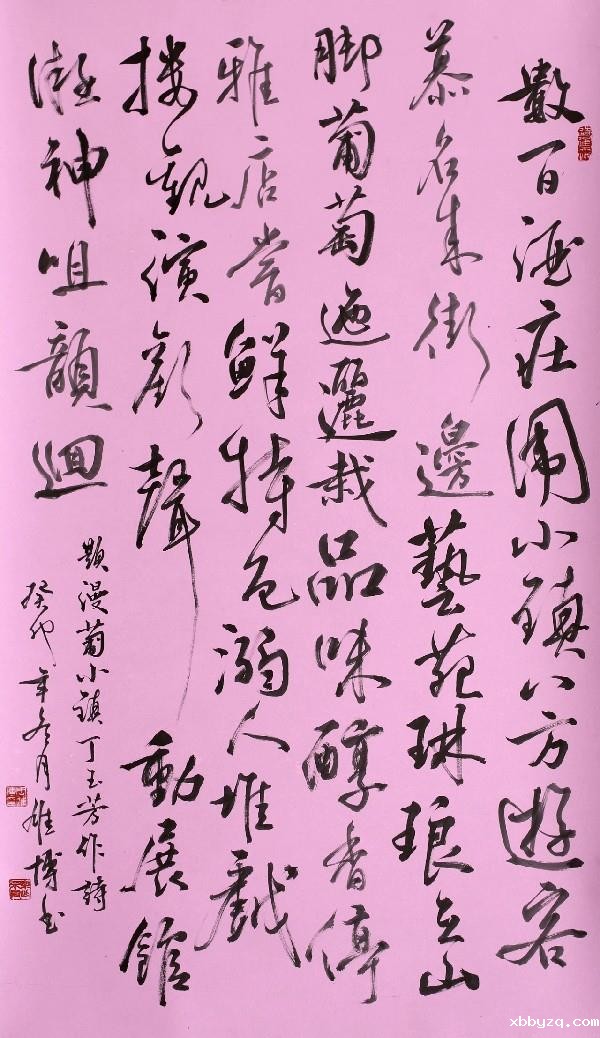 數百酒庄圍小鎮八方遊客
慕名来街邊藝苑琳琅立山
脚葡萄迤邐栽品味醇香停
雅店嘗鮮特色溺人堆戲
楼觀演歡聲動展館
凝神咀韻迴
題漫葡小鎮丁玉芳作詩
癸卯年冬月博书
xbbyzq.com